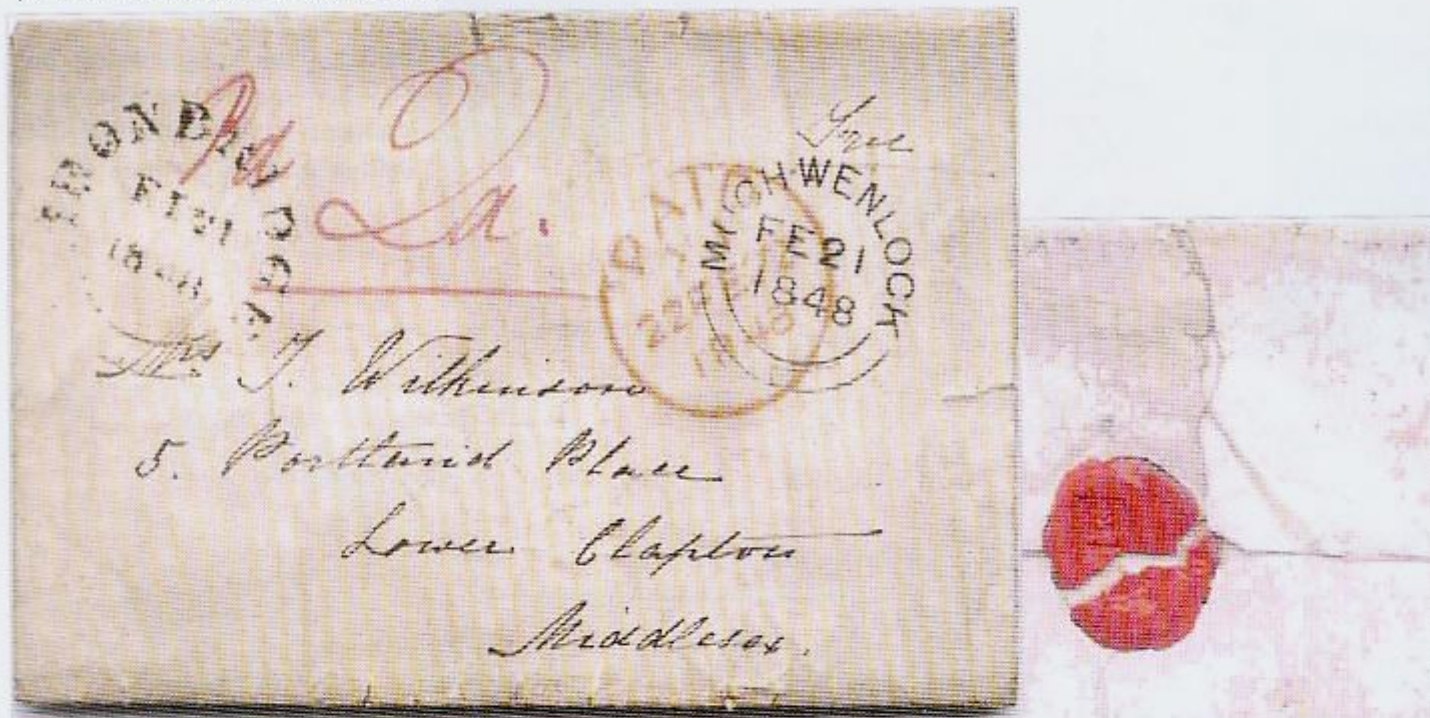 IRONBRIDGE
FE 21
1848
Pd 2d.
PAID
22 FE 22
1848
MUCH-WENLOCK
FE 21
1848
Mrs J. Wilkinson
5. Portland Place
Lower Clapton
Middlesex.